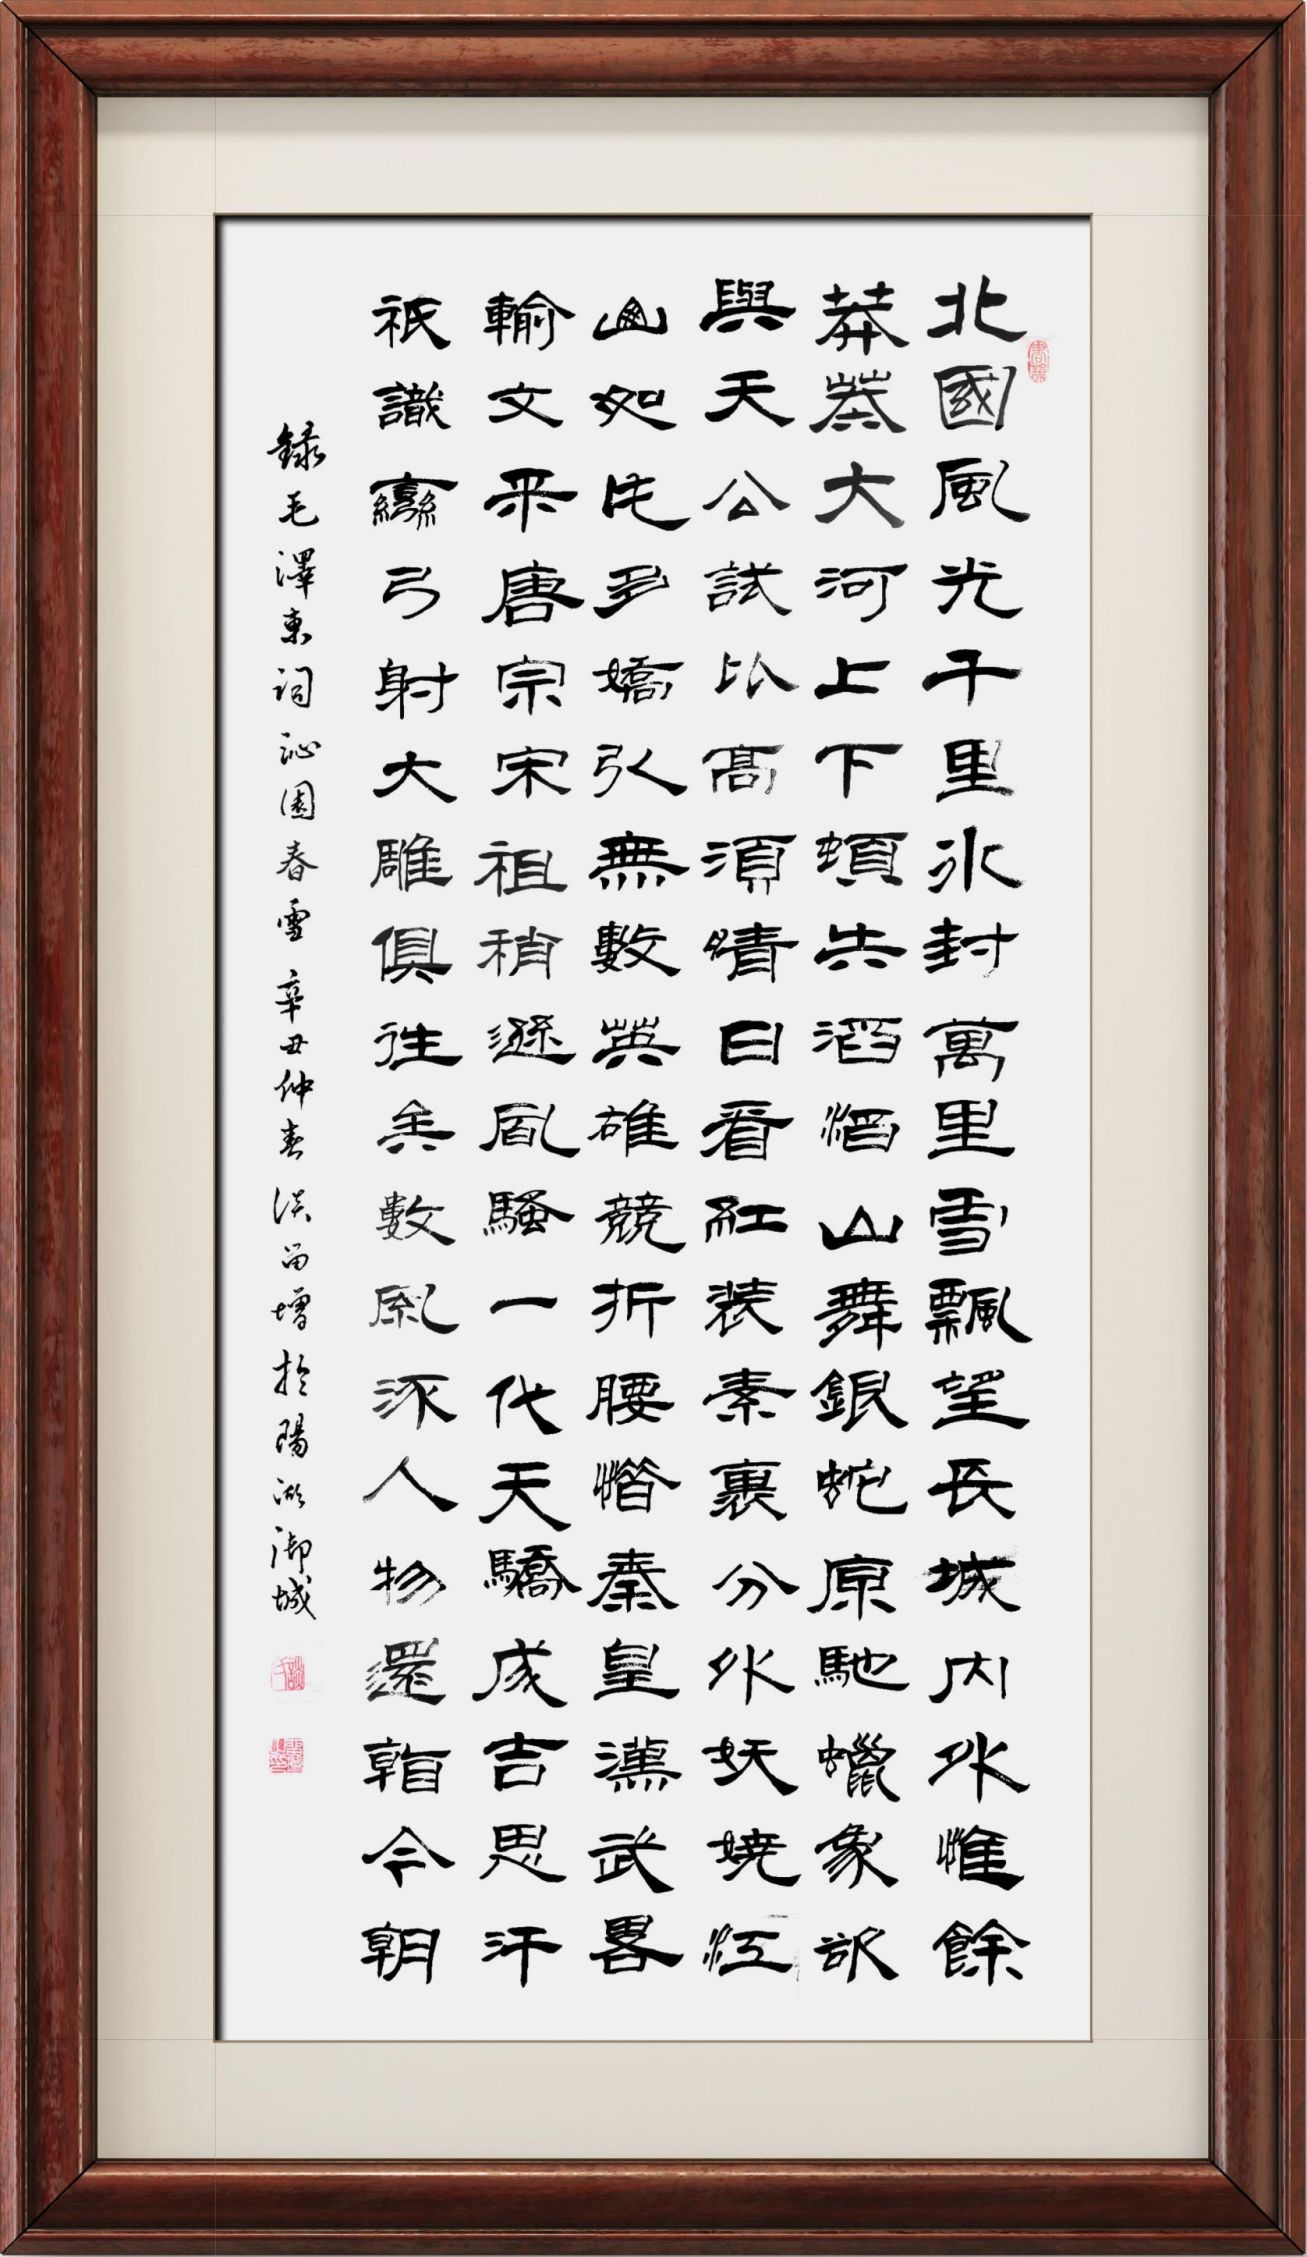 北國風光千里冰封萬里雪飄望長城內外惟餘
莽莽大河上下頓失滔滔山舞銀蛇原馳蠟象欲
與天公試比高須晴日看紅裝素裹分外妖嬈江
山如此多嬌引無數英雄競折腰惜秦皇漢武略
輸文采唐宗宋祖稍遜風騷一代天驕成吉思汗
祇識彎弓射大雕俱往矣數風流人物還看今朝
錄毛澤東詞沁園春雪辛丑仲春談留增於陽湖御城